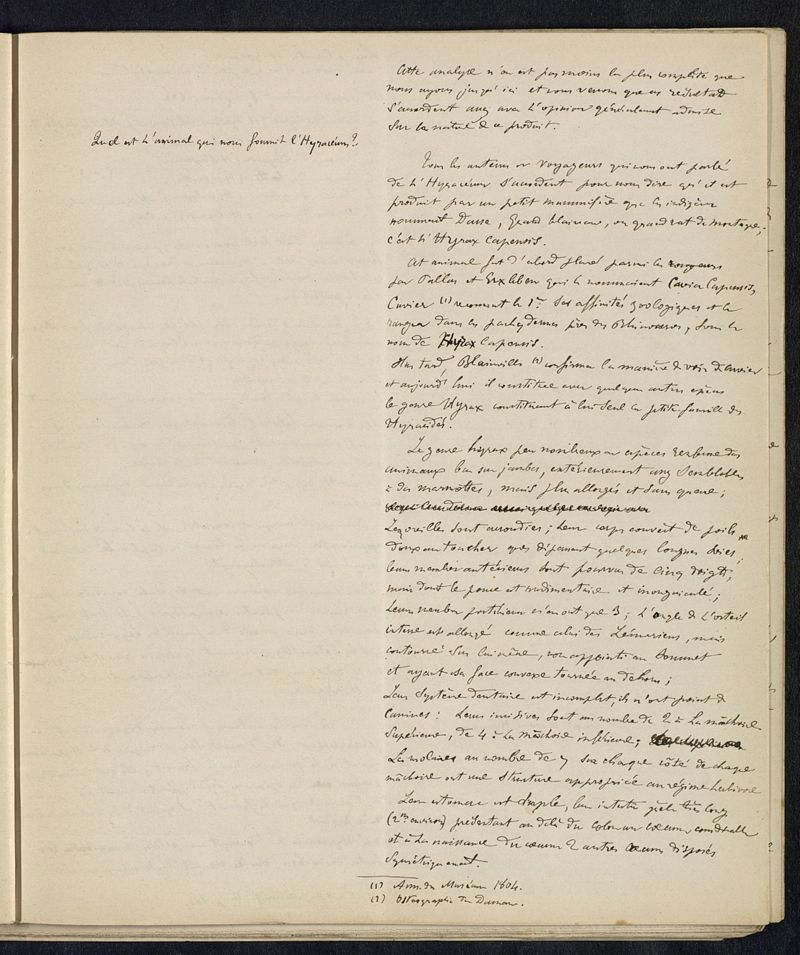 Cette analyse n'en est pas moins la plus complète que
nous ayons jusqu'ici et nous verrons que ces résultats
s'accordent assez avec l'opinion généralement admise
sur la nature de ce produit.
Quel est l'animal qui nous fournit l'Hyracéum?
Tous les auteurs ou voyageurs qui nous ont parlé
de l'Hyraceum s'accordent pour nous dire qu'il est
produit par un petit mammifère que les indigènes
nomment Dasse, blaireau, ou grand rat de montagne,
c'est l'Hyrax Capensis.
Cet animal fut d'abord placé parmi les rongeurs
par Pallas et Erxleben qui le nommaient Cavia Capensis
Cuvier (1) reconnut le 1er ses affinités zoologiques et le
rangea dans les pachydermes près des Rhinoceros, sous le
nom de Hyrax Capensis.
Plus tard, Blainville (2) confirma la manière de voir de Cuvier
et aujourd'hui il constitue avec quelques autres espèces
le genre Hyrax constituant à lui seul la petite famille des
Hyracidés.
Le genre hyrax peu nombreux en espèces renferme des
animaux bas sur jambes, extérieurement assez semblables
à des marmottes, mais plus allongés et sans queue;
Les oreilles sont arrondies; leur corps couvert de poils
doux au toucher que dépassent quelques longues soies;
leurs membres antérieurs sont pourvus de cinq doigts,
mais dont le pouce est rudimentaire et inonguiculé;
Leurs membres postérieurs n'en ont que 3; l'ongle de l'orteil
interne est allongé comme celui des Lémuriens, mais
contourné sur lui même, non appointi au sommet
et ayant sa face convexe tournée en dehors;
Leur système dentaire est incomplet, ils n'ont point de
Canines: Leurs incisives sont au nombre de 2 à la mâchoire
Supérieure, de 4 à la mâchoire inférieure;
Les molaires au nombre de 7 sur chaque côté de chaque
mâchoire ont une structure appropriée au régime herbivore
Leur estomac est simple, leur intestin grêle très long
(2m environ) présentant au delà du colon un cœcum considérable
et à la naissance du cœcum 2 autres cœcums disposés
Symétriquement.
(1) Ann. du Muséum 1804.
(2) Ostéographie du Daman.